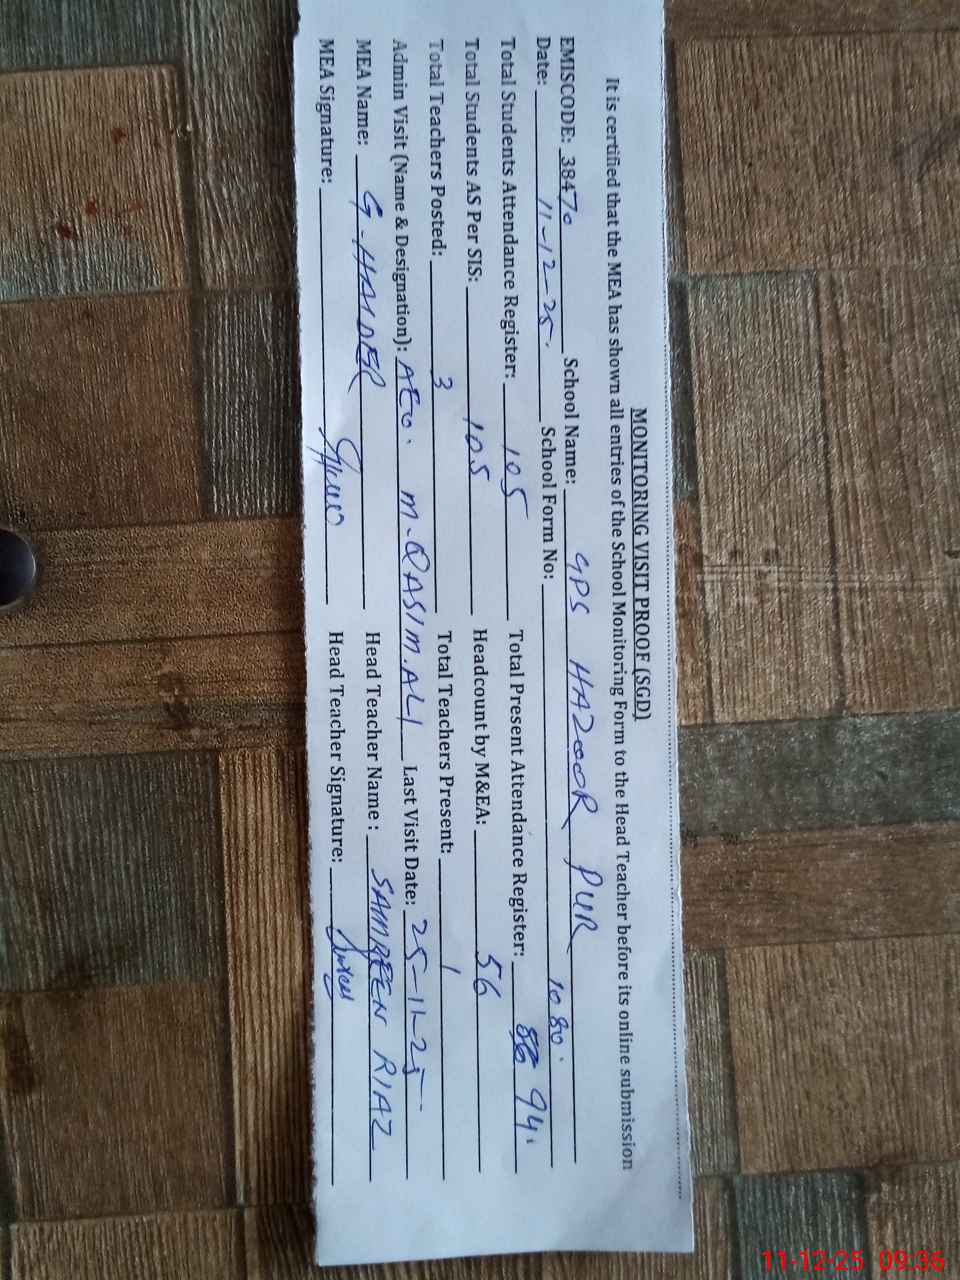 MONITORING VISIT PROOF (SGD)
It is certified that the MEA has shown all entries of the School Monitoring Form to the Head Teacher before its online submission
EMISCODE: 38470 School Name: GPS HAZOOR PUR
Date: 11-12-25. School Form No: 1080.
Total Students Attendance Register: 105 Total Present Attendance Register: 86 94.
Total Students AS Per SIS: 105 Headcount by M&EA: 56
Total Teachers Posted: 3 Total Teachers Present: 1
Admin Visit (Name & Designation): AEO. M.QASIM.ALI Last Visit Date: 25-11-25
MEA Name: G-HAIDER Head Teacher Name: SAMREEN RIAZ
MEA Signature: Head Teacher Signature:
11-12-25 09:36